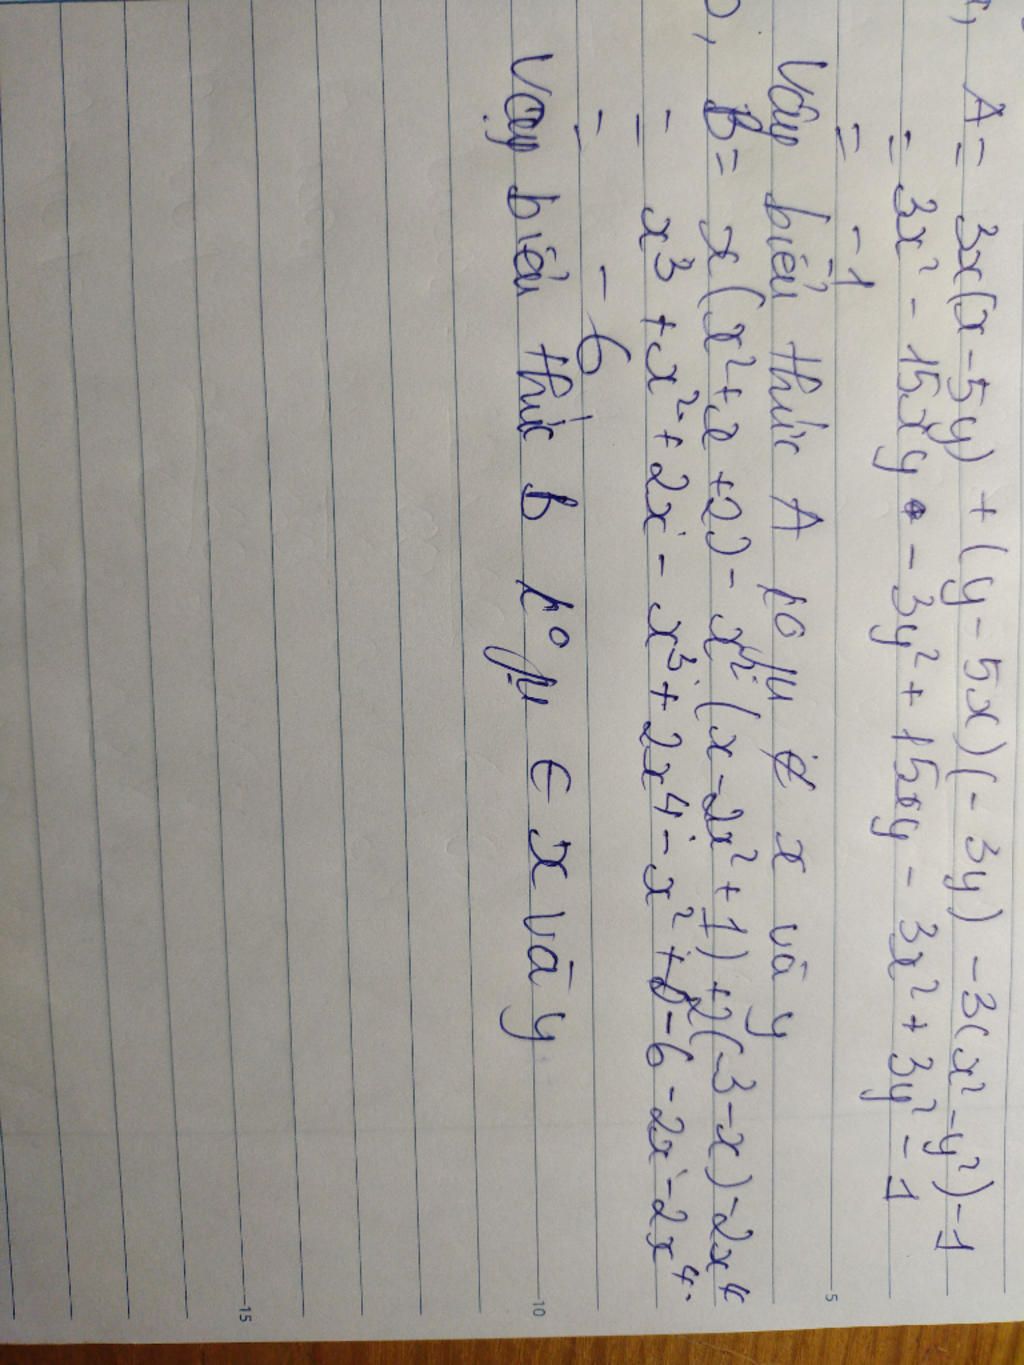 A = 3x(x-5y) + (y-5x)(-3y) -3(x²-y²)-1
= 3x² - 15xy - 3y² + 15xy - 3x² + 3y² - 1
= -1
Vậy biểu thức A ko pụ ∉ x và y
B = x(x²+x+2) - x²(x-2x²+1)+2(-3-x)-2x⁴
= x³ + x² + 2x - x³ + 2x⁴ - x² - 6 - 2x - 2x⁴
= -6
Vậy biểu thức b ko pụ ∈ x và y
5
10
15